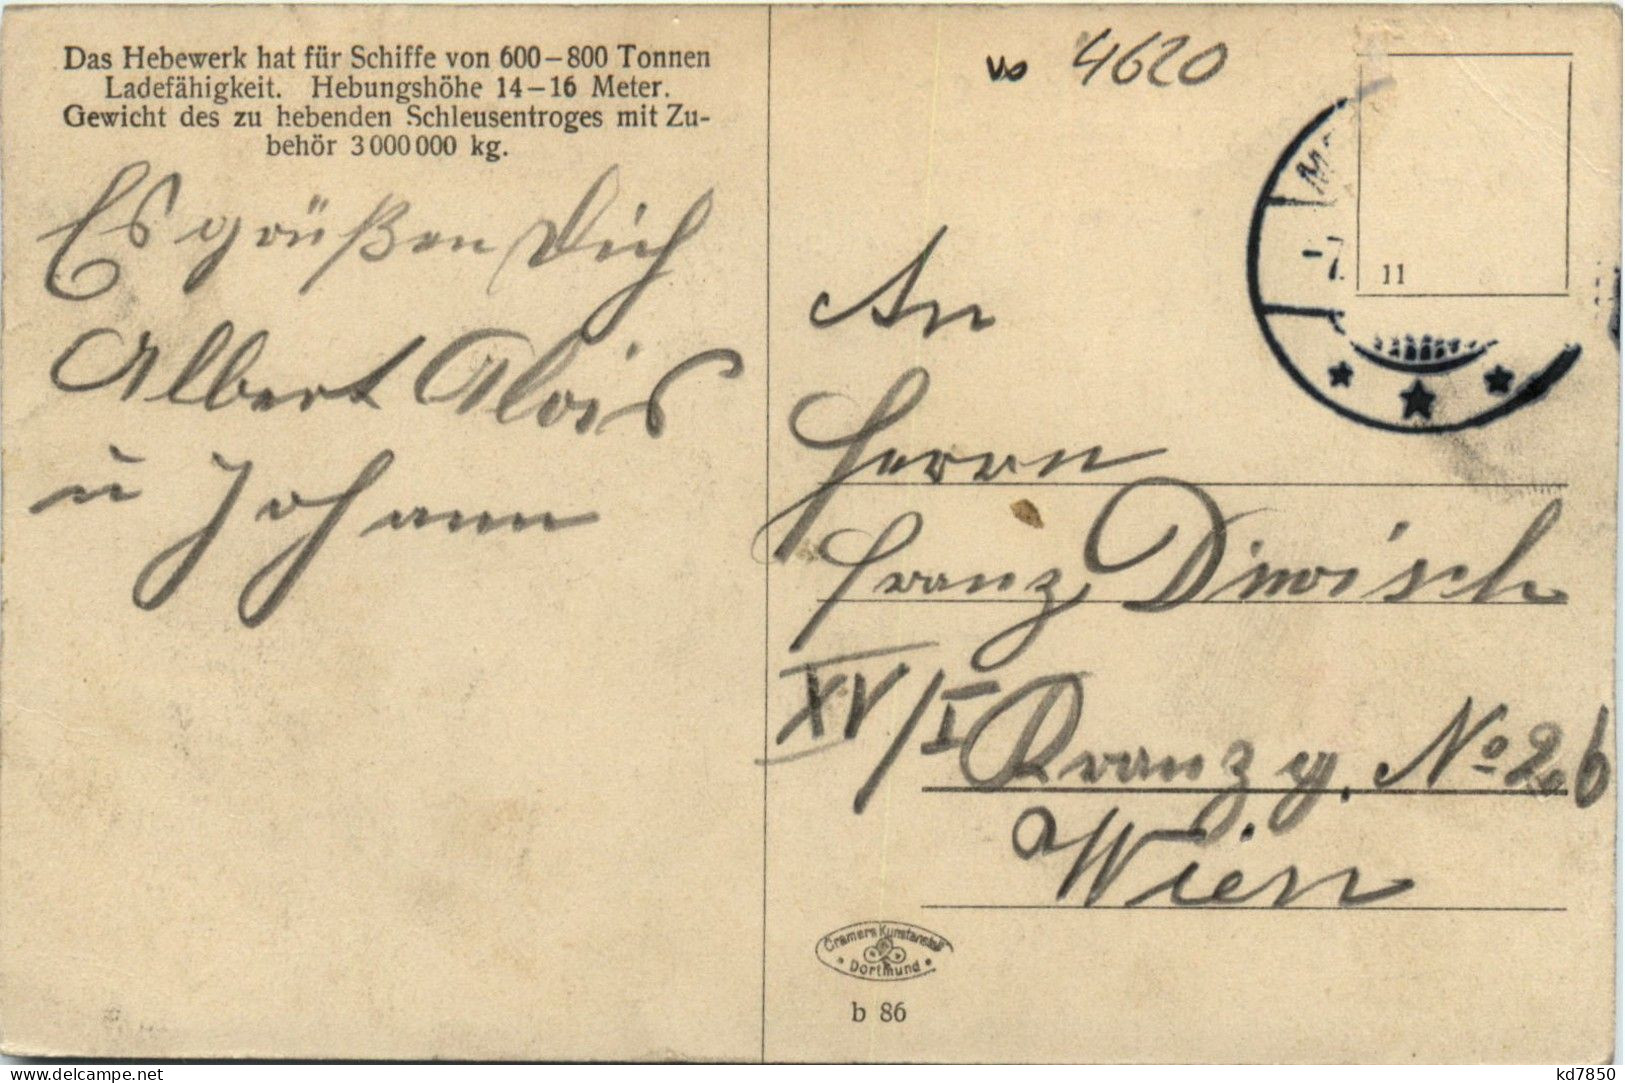 Das Hebewerk hat für Schiffe von 600–800 Tonnen
Ladefähigkeit. Hebungshöhe 14–16 Meter.
Gewicht des zu hebenden Schleusentroges mit Zu-
behör 3 000 000 kg.
Es grüßen Dich
Albert Alois
u Johann
4620
-7.
11
An
Herrn
Franz
XV/I Kranzg. No 26
Wien
Cramers Kunstanstalt
• Dortmund •
b 86
www.delcampe.net
kd7850